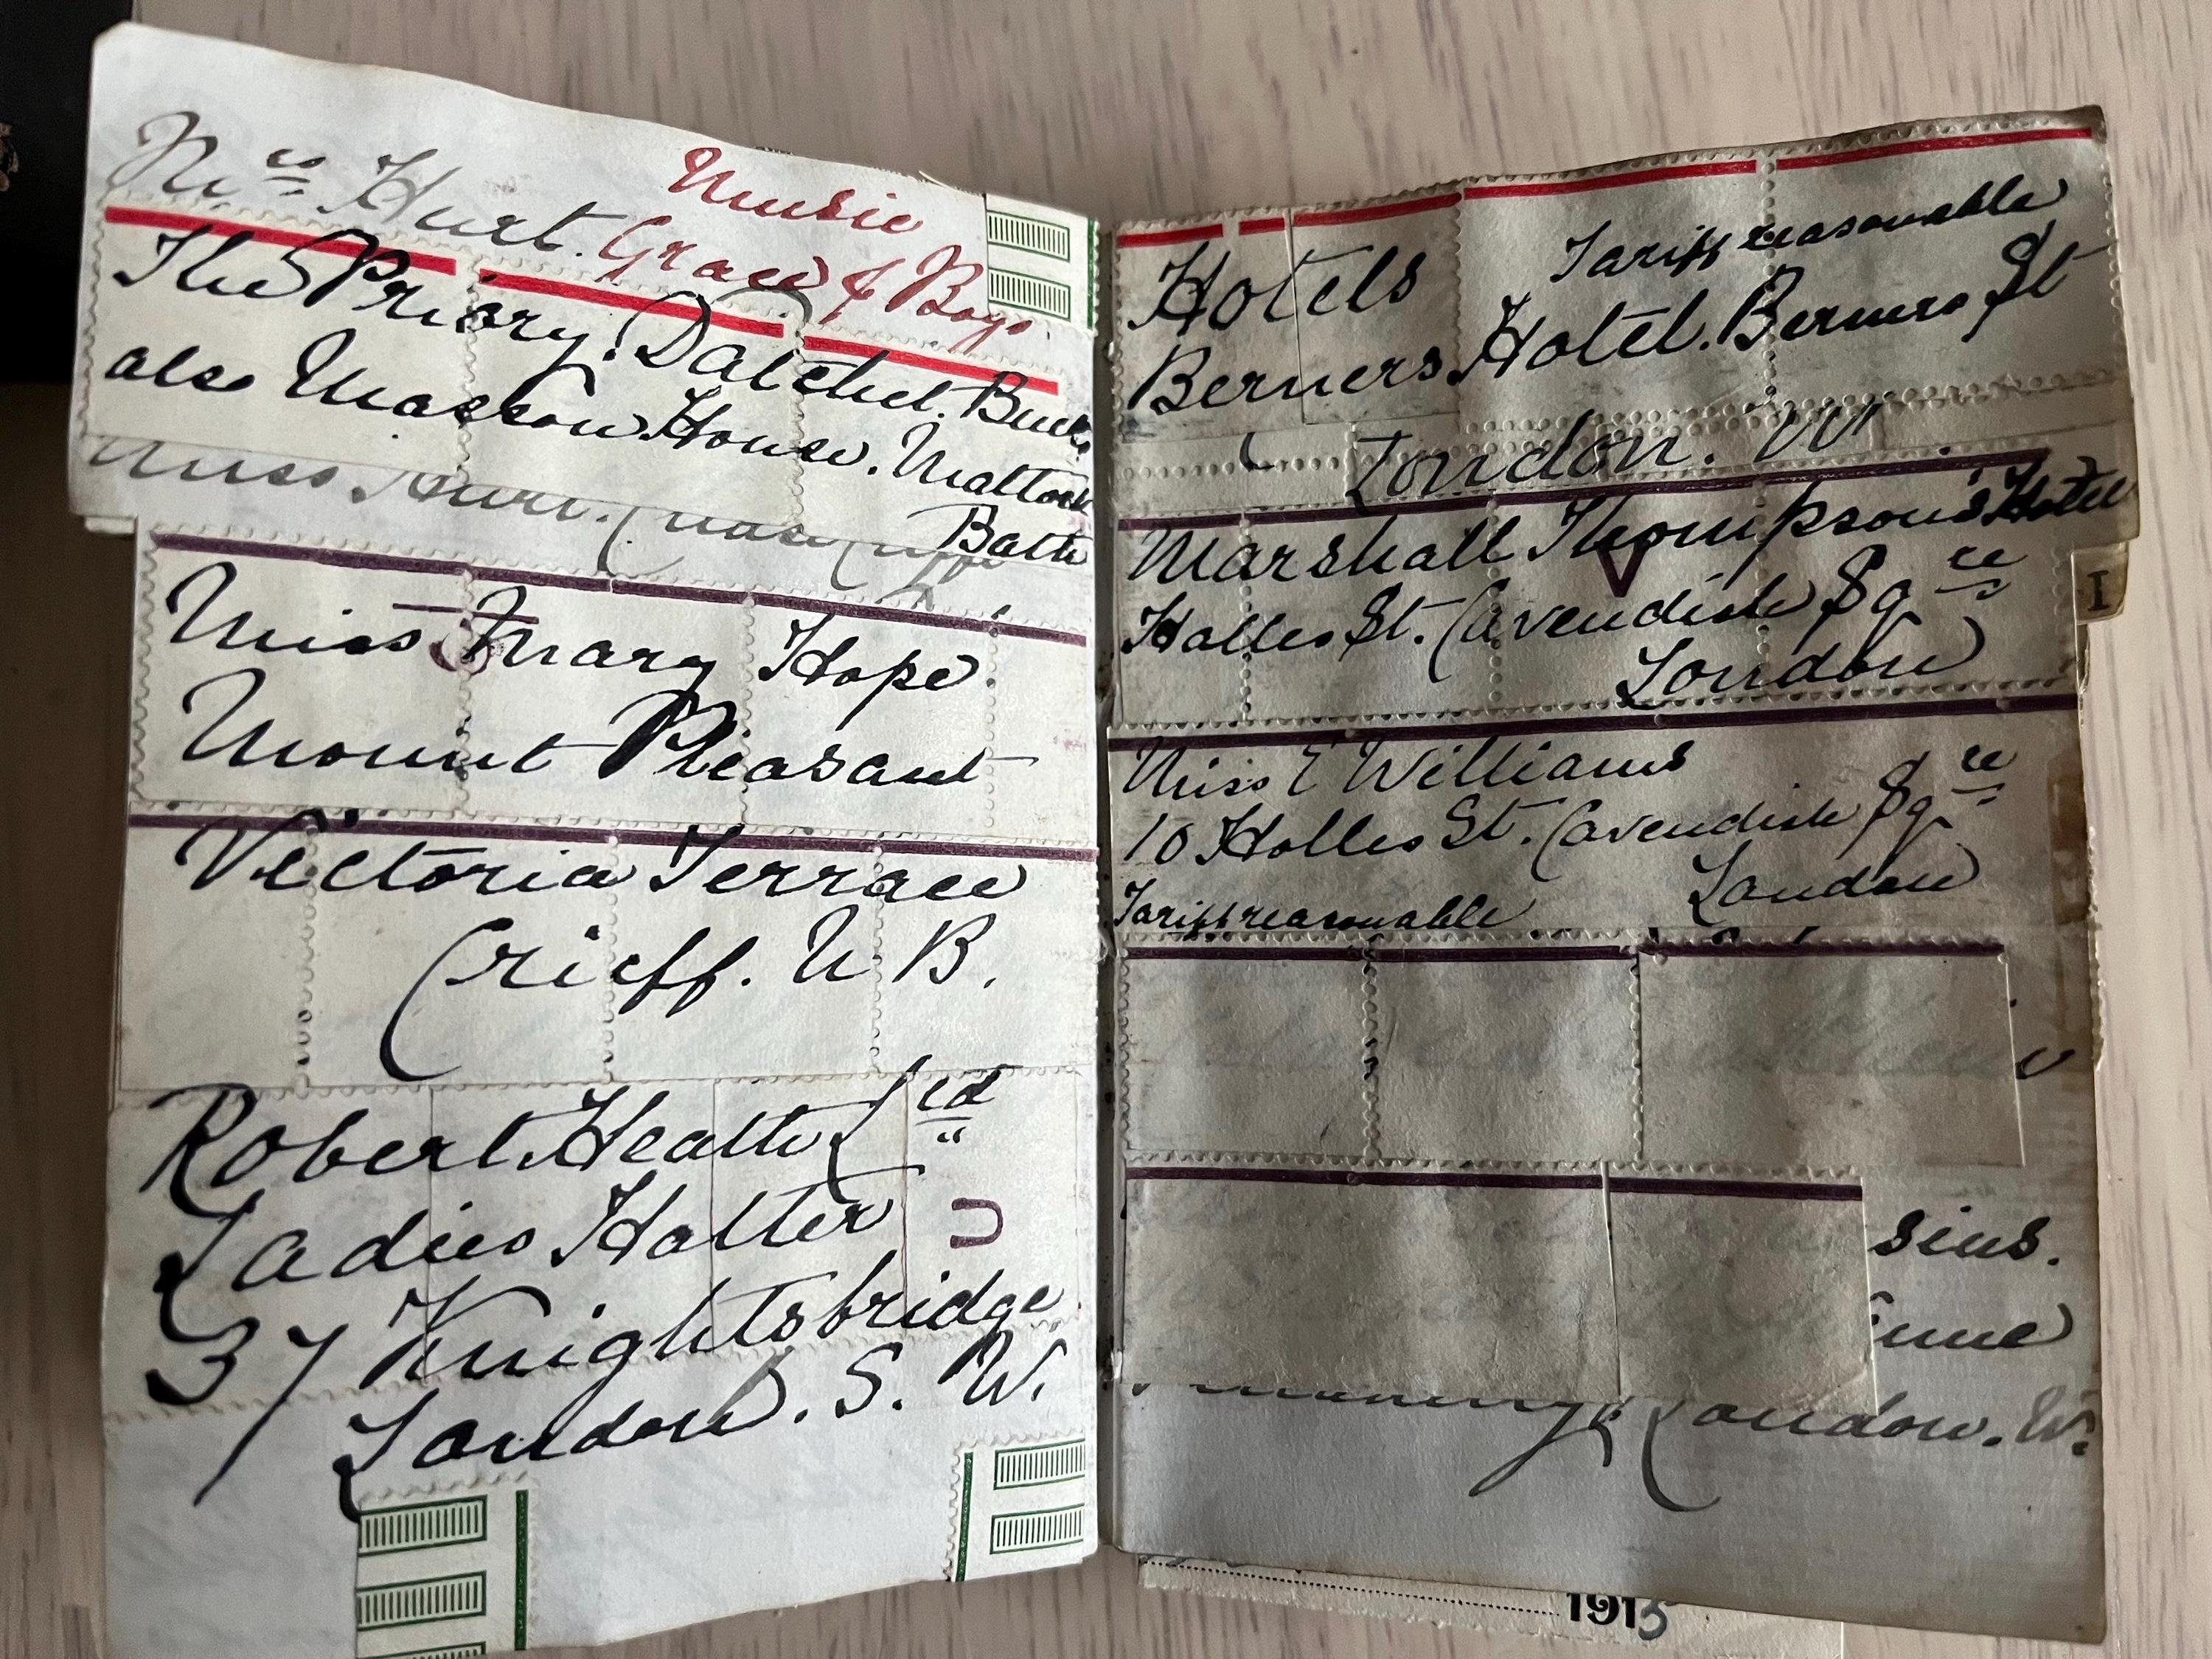 Music
Mrs Hurt. Grace & Boys.
The Priory. Datchet. Bucks
also Masson House. Matlock
Bath
Miss Hurt.
Miss Mary Hope.
Mount Pleasant
Victoria Terrace
Crieff. N. B.
Robert Heath Ltd
Ladies Hatter
37 Knightsbridge
London. S. W.
Hotels
Tariff reasonable
Berners Hotel. Berners St
London. W
Marshall Thompson's Hotel
Holles St. Cavendish Sqre
London
Miss E Williams
10 Holles St. Cavendish Sqre
London
Tariff reasonable
sius.
London. W.
I
1913